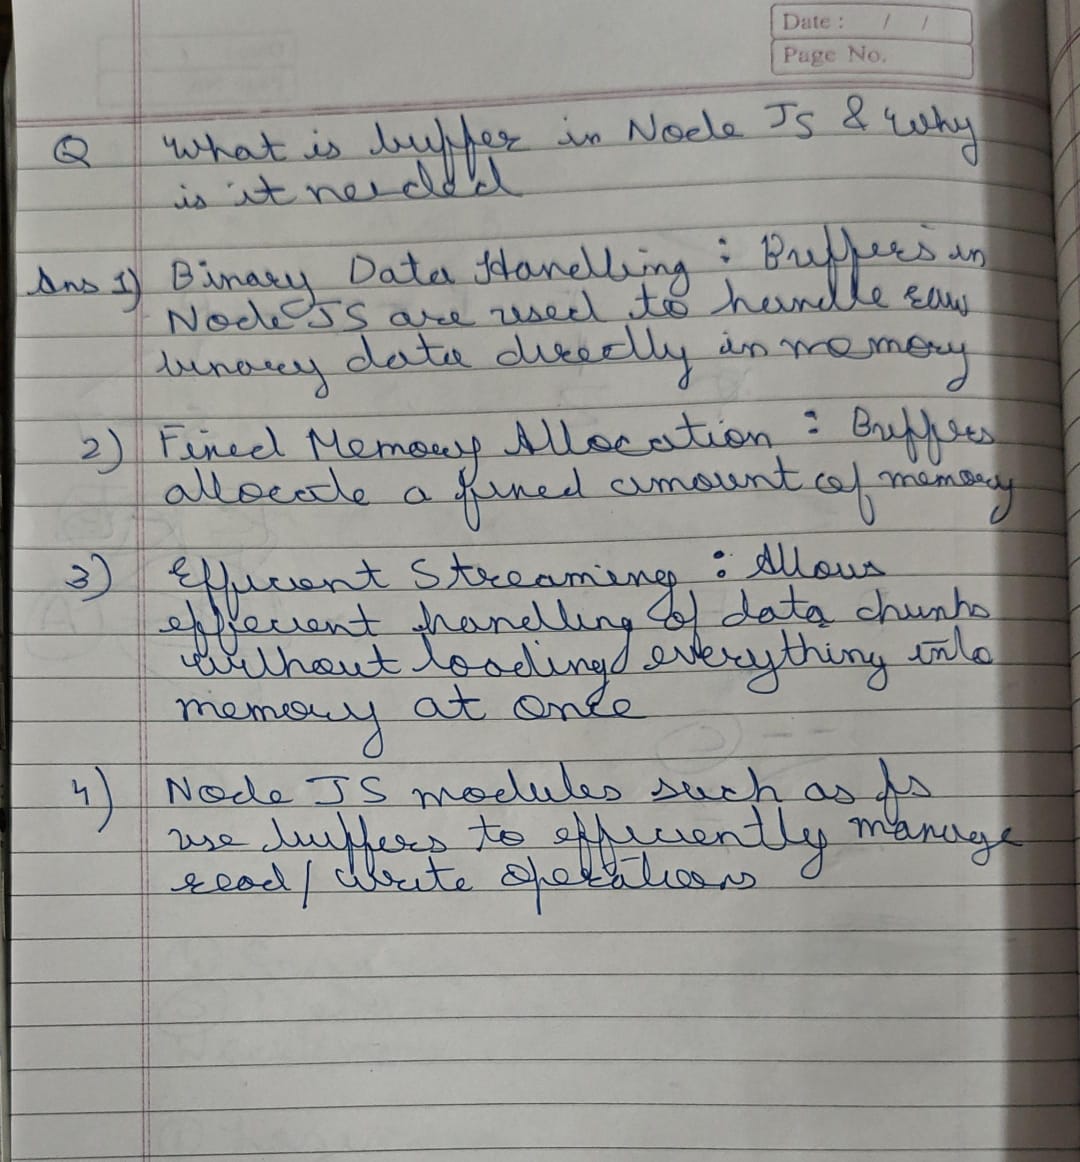 Date : / /
Page No.
Q What is buffer in Node JS & Why
is it needed
Ans 1) Binary Data Handling : Buffers in
Node JS are used to handle raw
binary data directly in memory
2) Fixed Memory Allocation : Buffers
allocate a fixed amount of memory
3) Efficient Streaming : Allows
efficient handling of data chunks
without loading everything into
memory at once
4) Node JS modules such as fs
use buffers to efficiently manage
read / write operations